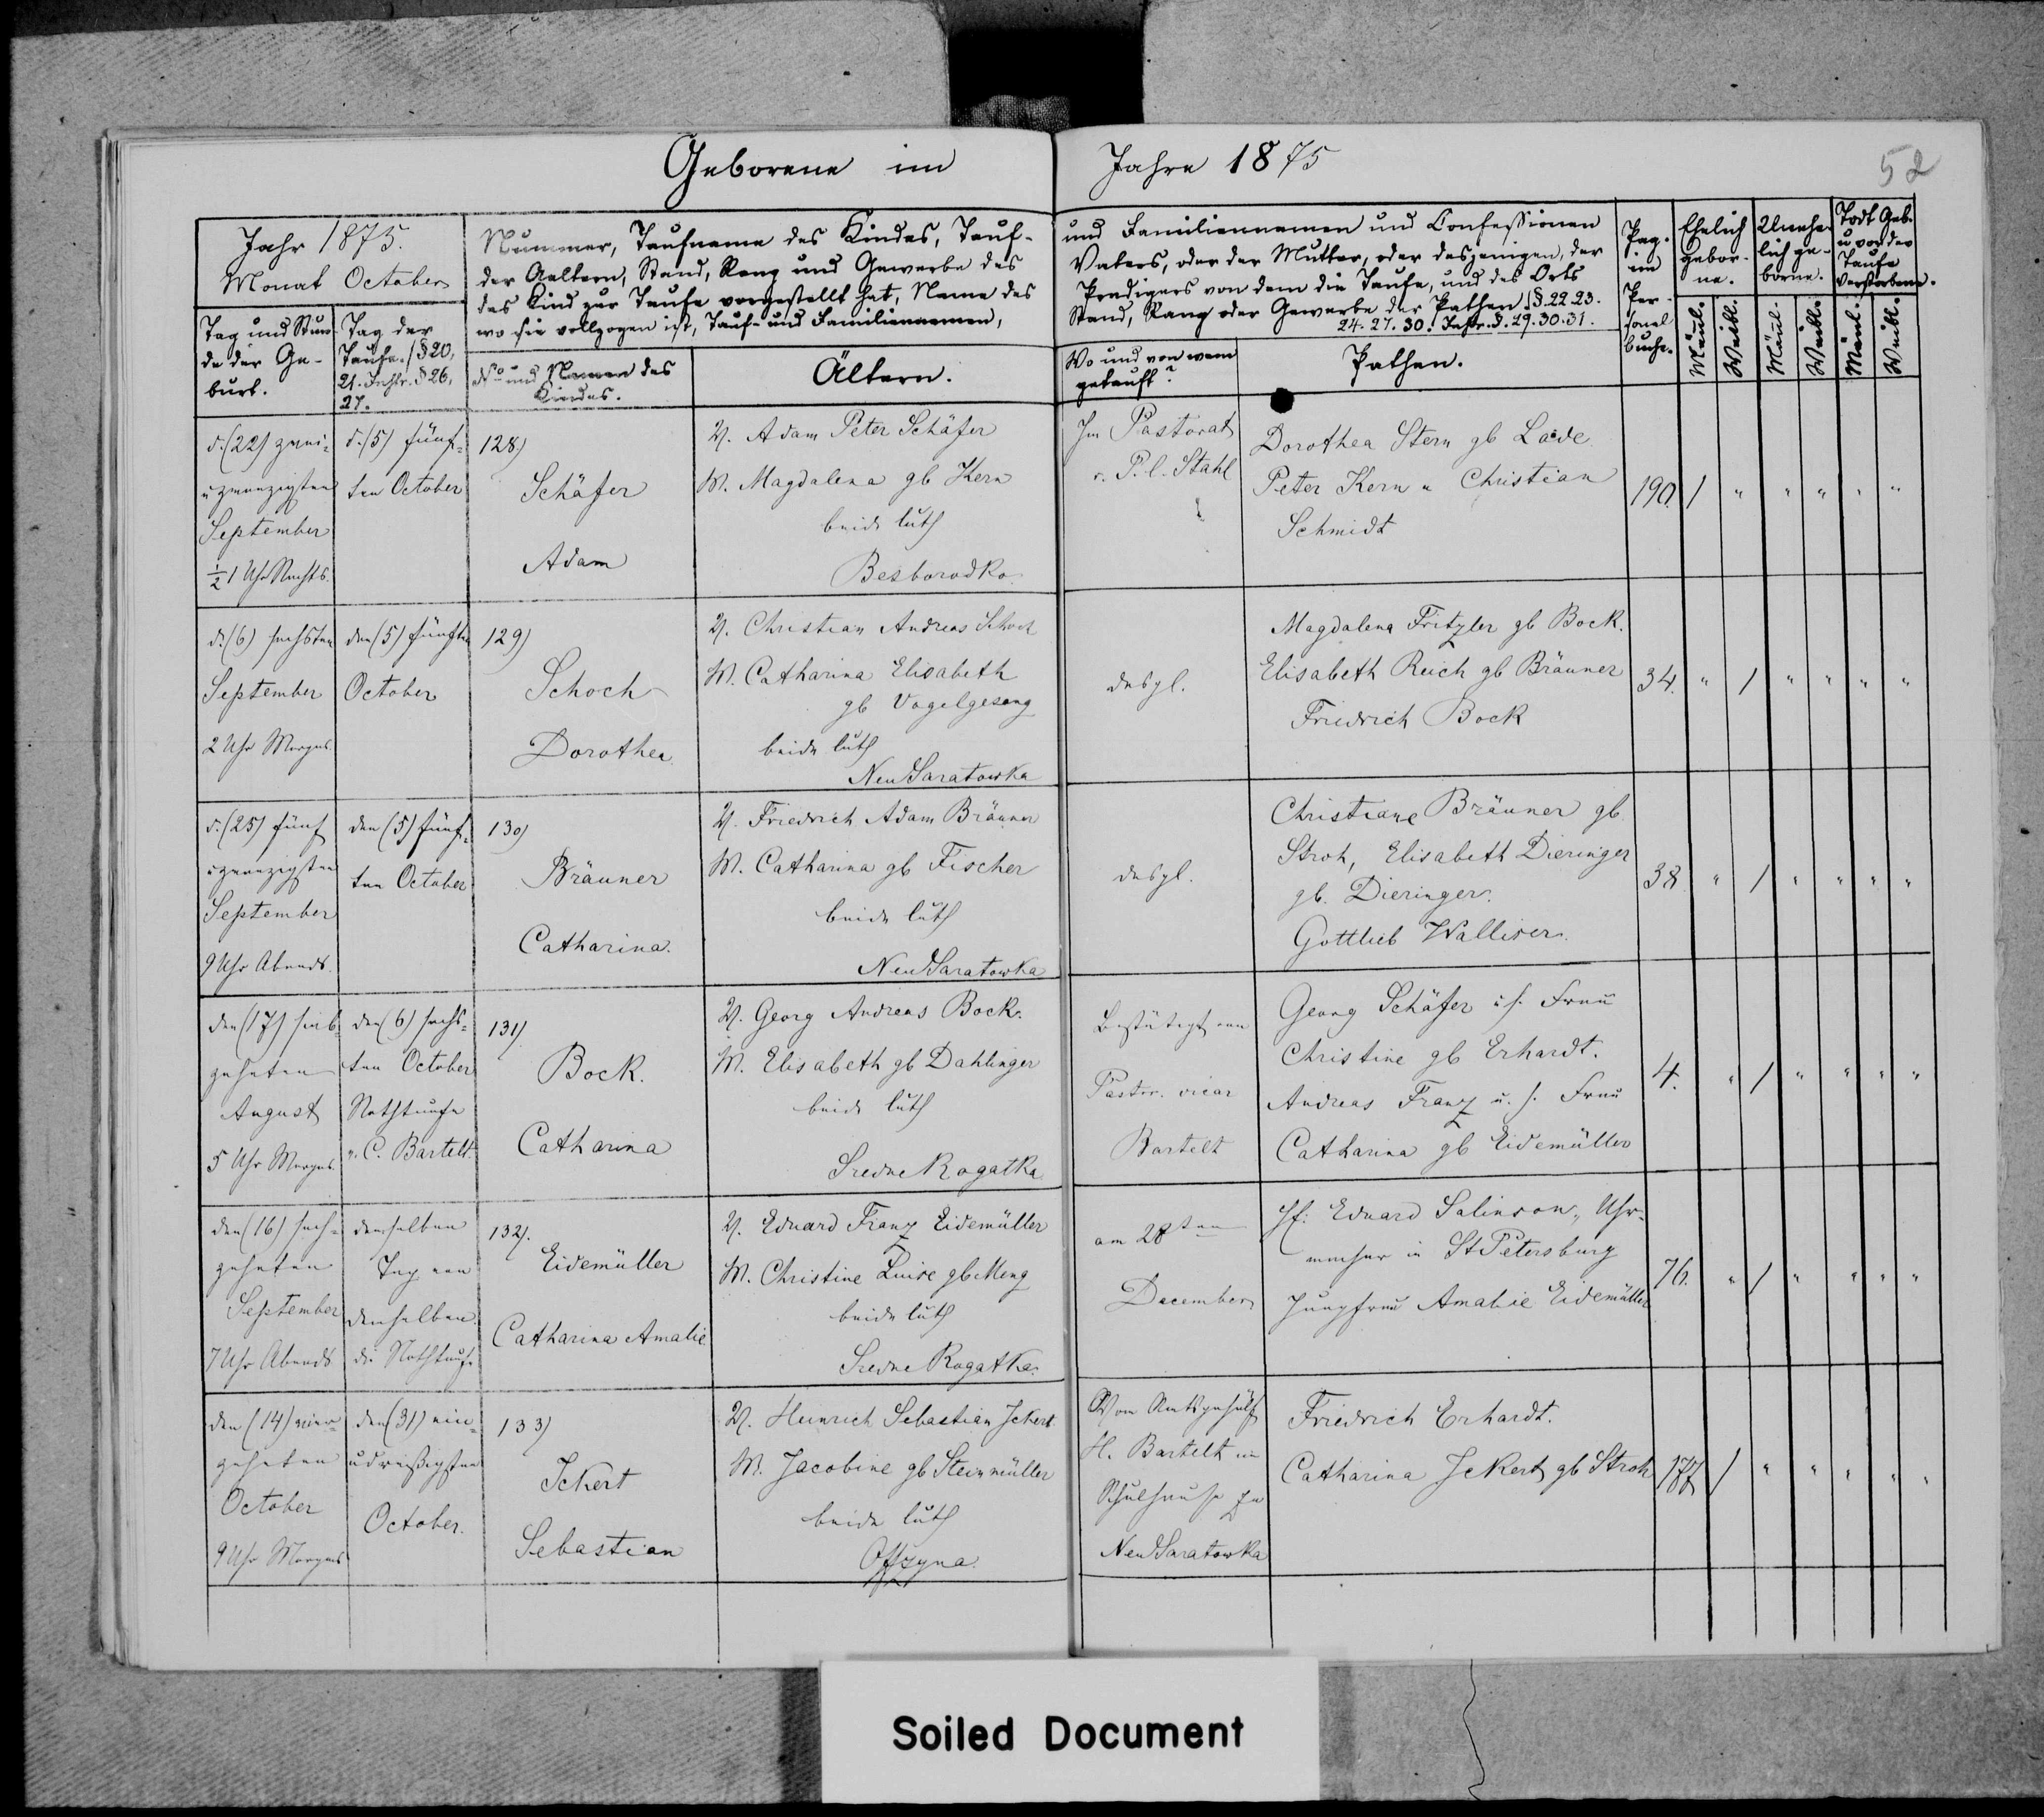 Geborene im Jahre 1875
52
Jahr 1875.
Monat October
Tag und Stun-
de der Ge-
burt.
Tag der
Taufe. §20,
21. Instr. §26,
27.
Nummer, Taufname des Kindes, Tauf-
der Aeltern, Stand, Rang und Gewerbe des
das Kind zur Taufe vorgestellt hat, Name des
wo sie vollzogen ist, Tauf- und Familiennamen,
No und Namen des
Kindes.
Ältern.
und Familiennamen und Confessionen
Vaters, oder der Mutter, oder desjenigen, der
Predigers von dem die Taufe, und des Orts
Stand, Rang oder Gewerbe der Pathen. §. 22. 23.
24. 27. 30. Instr. §. 29. 30. 31.
Wo und von wem
getauft?
Pathen.
Pag.
im
Per-
sonal
buche.
Ehelich
gebor-
ne.
Unehe-
lich ge-
borne.
Todt Geb.
u vor der
Taufe
Verstorbene.
Mänl.
Weibl.
Mänl.
Weibl.
Mänl.
Weibl.
d. (22) zwei-
u zwanzigsten
September
½ 1 Uhr Nachts.
d. (5) fünf-
ten October
128)
Schäfer
Adam
V. Adam Peter Schäfer
M. Magdalena gb Kern
beide luth
Besborodko.
Im Pastorat
v. P. l. Stahl
Dorothea Stern gb Lade
Peter Kern u Christian
Schmidt
190. / " " " " "
d. (6) sechsten
September
2 Uhr Morgens.
den (5) fünften
October
129)
Schoch
Dorothea
V. Christian Andreas Schoch
M. Catharina Elisabeth
gb Vogelgesang
beide luth
Neu Saratowka
desgl.
Magdalena Fritzler gb Bock.
Elisabeth Reich gb Bräuner
Friedrich Bock
34. " / " " " "
d. (25) fünf
u zwanzigsten
September
9 Uhr Abends.
den (5) fünf-
ten October
130)
Bräuner
Catharina.
V. Friedrich Adam Bräuner
M. Catharina gb Fischer
beide luth
Neu Saratowka
desgl.
Christiane Bräuner gb
Stroh, Elisabeth Dieringer
gb. Dieringer.
Gottlieb Walliser.
38 " / " " " "
den (17) sieb-
zehnten
August
5 Uhr Morgens.
den (6) sechs-
ten October
Nothtaufe
v. C. Bartelt.
131)
Bock.
Catharina
V. Georg Andreas Bock.
M. Elisabeth gb Dahlinger
beide luth
Sredne Rogatka
Bestätigt von
Pastor. vicar
Bartelt
Georg Schäfer u s. Frau
Christine gb Erhardt.
Andreas Franz u. s. Frau
Catharina gb Eidemüller
4. " / " " " "
den (16) sech-
zehnten
September
7 Uhr Abends
denselben
Tag von
demselben
die Nothtaufe
132).
Eidemüller
Catharina Amalie
V. Eduard Franz Eidemüller
M. Christine Luise gb Meng
beide luth
Sredne Rogatka.
am 28sten
December
Eduard Salinson, Uhr-
macher in St Petersburg
Jungfrau Amalie Eidemüller
76. " / " " " "
den (14) vier-
zehnten
October
9 Uhr Morgens
den (31) ein-
udreißigsten
October.
133)
Ickert
Sebastian
V. Heinrich Sebastian Ickert
M. Jacobine gb Steinmüller
beide luth
Offzyna.
Vom Amtsgehülf
H. Bartelt im
Schulhause zu
Neu Saratowka
Friedrich Erhardt.
Catharina Ickert gb Stroh
177 / " " " " "
Soiled Document